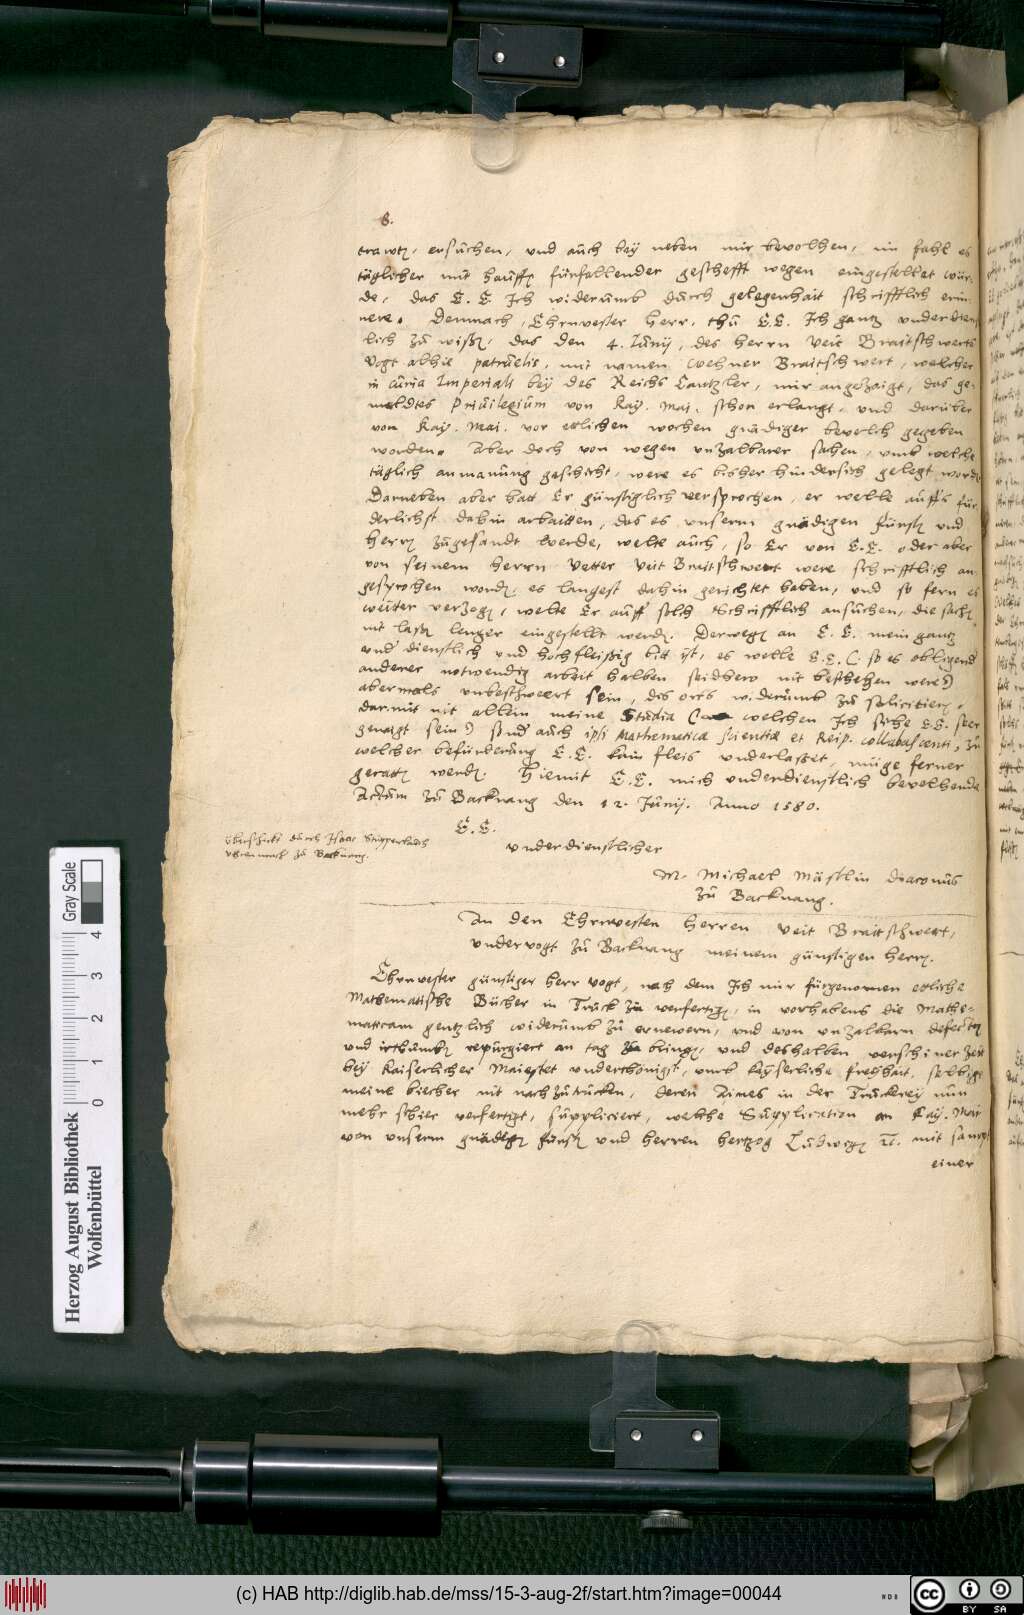 8.
trawtz, ersuchen, und auch bey neben mir bevolhen, im fahl es
täglicher mit hauffen fürfallender geschefft wegen eingestellet wür-
de, das E. E. Ich widerumb durch gelegenhait schrifftlich erin-
nere. Demnach, Ehrnvester Herr, thu E.E. Ich gantz underdienst
lich zu wissen, das den 4. Junij, des herrn Veit Braitschwerts
Vogt alhie patruelis, mit namen Wehner Braitschwert, welcher
in Curia Imperiali bey des Reichs Cantzler, mir angezaigt, das ge-
meldtes Privilegium von Kay. Mai. schon erlangt, und darüber
von Kay. Mai. vor etlichen wochen gnädiger bevelch gegeben
worden. Aber doch von wegen unzalbarer sachen, umb welche
täglich anmanung geschicht, were es bisher hindersich gelegt worden
Darneben aber hatt Er günstiglich versprochen, er welle auffs für
derlichst dahin arbaiten, das es unserm gnädigen Fürsten und
Herrn zugesandt werde, welte auch, so Er von E.E. oder aber
von seinem herrn Vetter Veit Braitschwert were schrifftlich an
gesprochen worden, es langest dahin gerichtet haben, und so fern es
weitter verzogen, welte Er auff solch schrifftlich ansuchen, die sachen
nit lassen lenger eingestellt werden. Derwegen an E. E. mein gantz
underdienstlich und hochfleissig bitt ist, es welle E.E. (so es obligend
anderer notwendig arbeit halben seidhero nit beschehen were)
abermals unbeschwert sein, dis orts widerumb zu solicitiern,
darmit nit allein meine Studia ( welchen Ich sihe E.E. seer
genaigt sein) sond auch ipsi Mathematicæ scientiæ et Reip. collabascenti, zu
welcher befünderung E.E. kain fleis underlasset, müge ferner
geratten werden. Hiemit E.E. mich underdienstlich bevelhende
Actum zu Backnang den 12. Junij. Anno 1580.
E.E.
überschickt durch Isaac
uhrenmach zu Backnang.
underdienstlicher
M. Michael Mästlin diaconus
zu Backnang.
An den Ehrnvesten Herren Veit Braittschwert,
undervogt zu Backnang meinem günstigen herrn.
Ehrnvester günstiger herr vogt, nach dem Ich mir fürgenomen etliche
Mathematische Bücher in Truck zu verfertigen, in vorhabens die Mathe-
maticam gentzlich widerumb zu ernewern, und von unzalbarn defecten
und irthumben repurgiert an tag zu bringen, und deshalben verschiner zeit
bey Kaiserlicher Maiestet underthönigst, umb kayserliche freyhait, selbige
meine biecher nit nachzutrucken, deren Aines in der Truckerey nun
mehr schier verfertigt, suppliciert, welche Supplication an Kay. Mai
von unserm gnädigen fürsten und herren hertzog Ludwigen etc. mit sampt
einer
Gray Scale
0 1 2 3 4
Herzog August Bibliothek
Wolfenbüttel
(c) HAB http://diglib.hab.de/mss/15-3-aug-2f/start.htm?image=00044
WDB
cc
BY SA